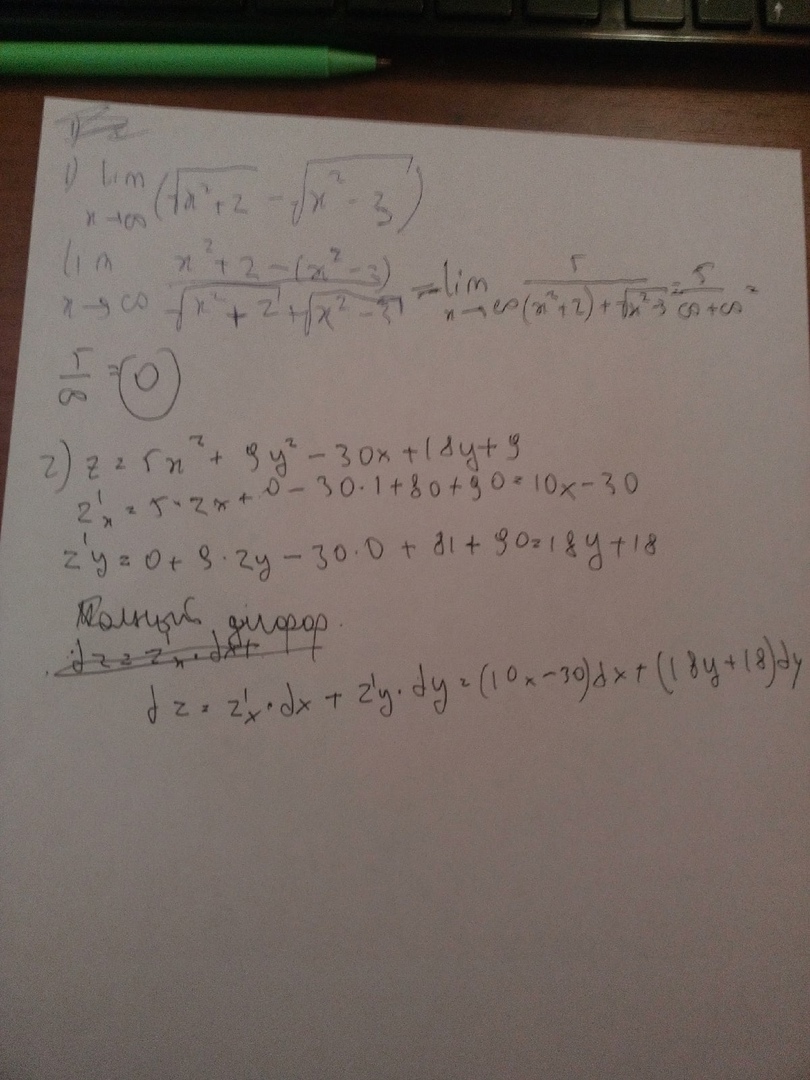 1) lim x→∞ (√x²+2 - √x²-3)
lim x→∞ x²+2-(x²-3) / √x²+2 + √x²-3 = lim x→∞ 5 / (x²+2)+√x²-3 = 5 / ∞+∞ =
5/∞ = 0
2) z = 5x² + 9y² - 30x + 18y + 9
z'x = 5·2x + 0 - 30·1 + 80 + 90 = 10x - 30
z'y = 0 + 9·2y - 30·0 + 81 + 90 = 18y + 18
Полный дифор.
dz = z'x · dx+
dz = z'x · dx + z'y · dy = (10x-30)dx + (18y+18)dy